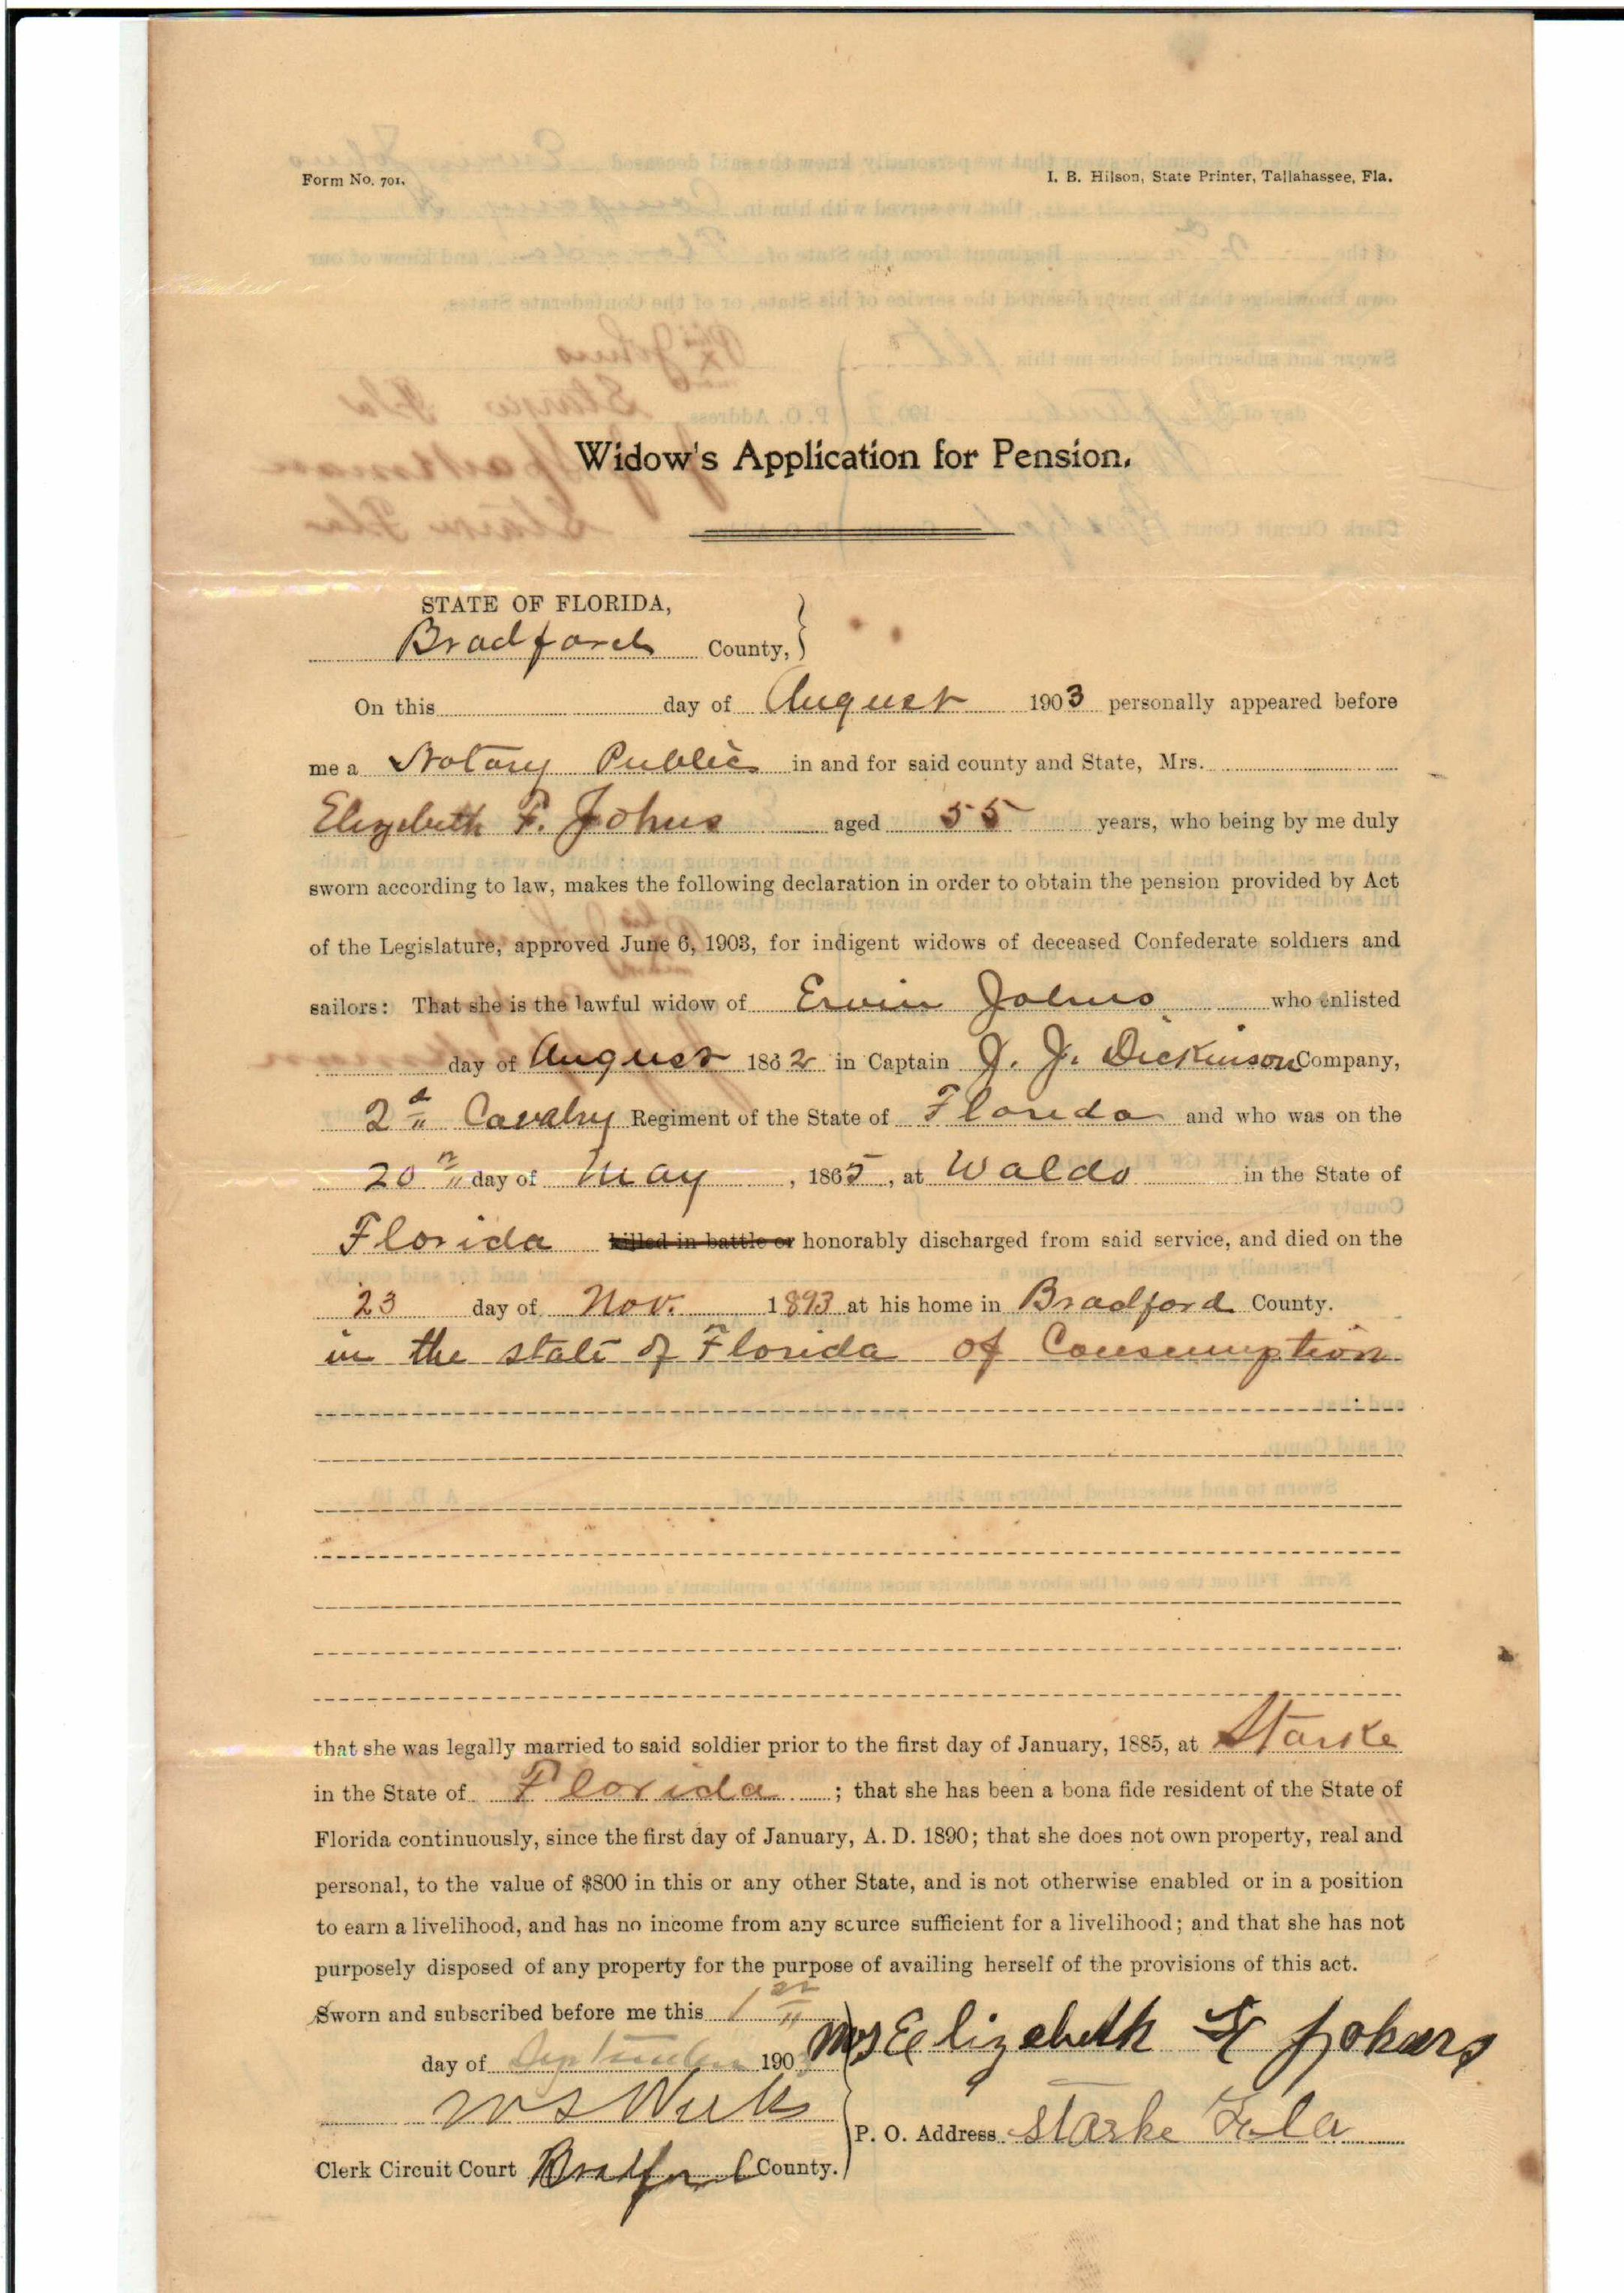 Form No. 701.
I. B. Hilson, State Printer, Tallahassee, Fla.
Widow's Application for Pension.
STATE OF FLORIDA,
Bradford County,
On this day of August 1903 personally appeared before
me a Notary Public in and for said county and State, Mrs.
Elizebeth F. Johns aged 55 years, who being by me duly
sworn according to law, makes the following declaration in order to obtain the pension provided by Act
of the Legislature, approved June 6, 1903, for indigent widows of deceased Confederate soldiers and
sailors: That she is the lawful widow of Ervin Johns who enlisted
day of August 1862 in Captain J. J. Dickinson Company,
2d Cavalry Regiment of the State of Florida and who was on the
20th day of May, 1865, at Waldo in the State of
Florida killed in battle or honorably discharged from said service, and died on the
23 day of Nov. 1893 at his home in Bradford County.
in the state of Florida of Consumption
that she was legally married to said soldier prior to the first day of January, 1885, at Starke
in the State of Florida; that she has been a bona fide resident of the State of
Florida continuously, since the first day of January, A. D. 1890; that she does not own property, real and
personal, to the value of $800 in this or any other State, and is not otherwise enabled or in a position
to earn a livelihood, and has no income from any source sufficient for a livelihood; and that she has not
purposely disposed of any property for the purpose of availing herself of the provisions of this act.
Sworn and subscribed before me this 1st
day of September 1903
Mrs Eelizebeth F Johns
W S Weeks
P. O. Address Starke Fla
Clerk Circuit Court Bradford County.